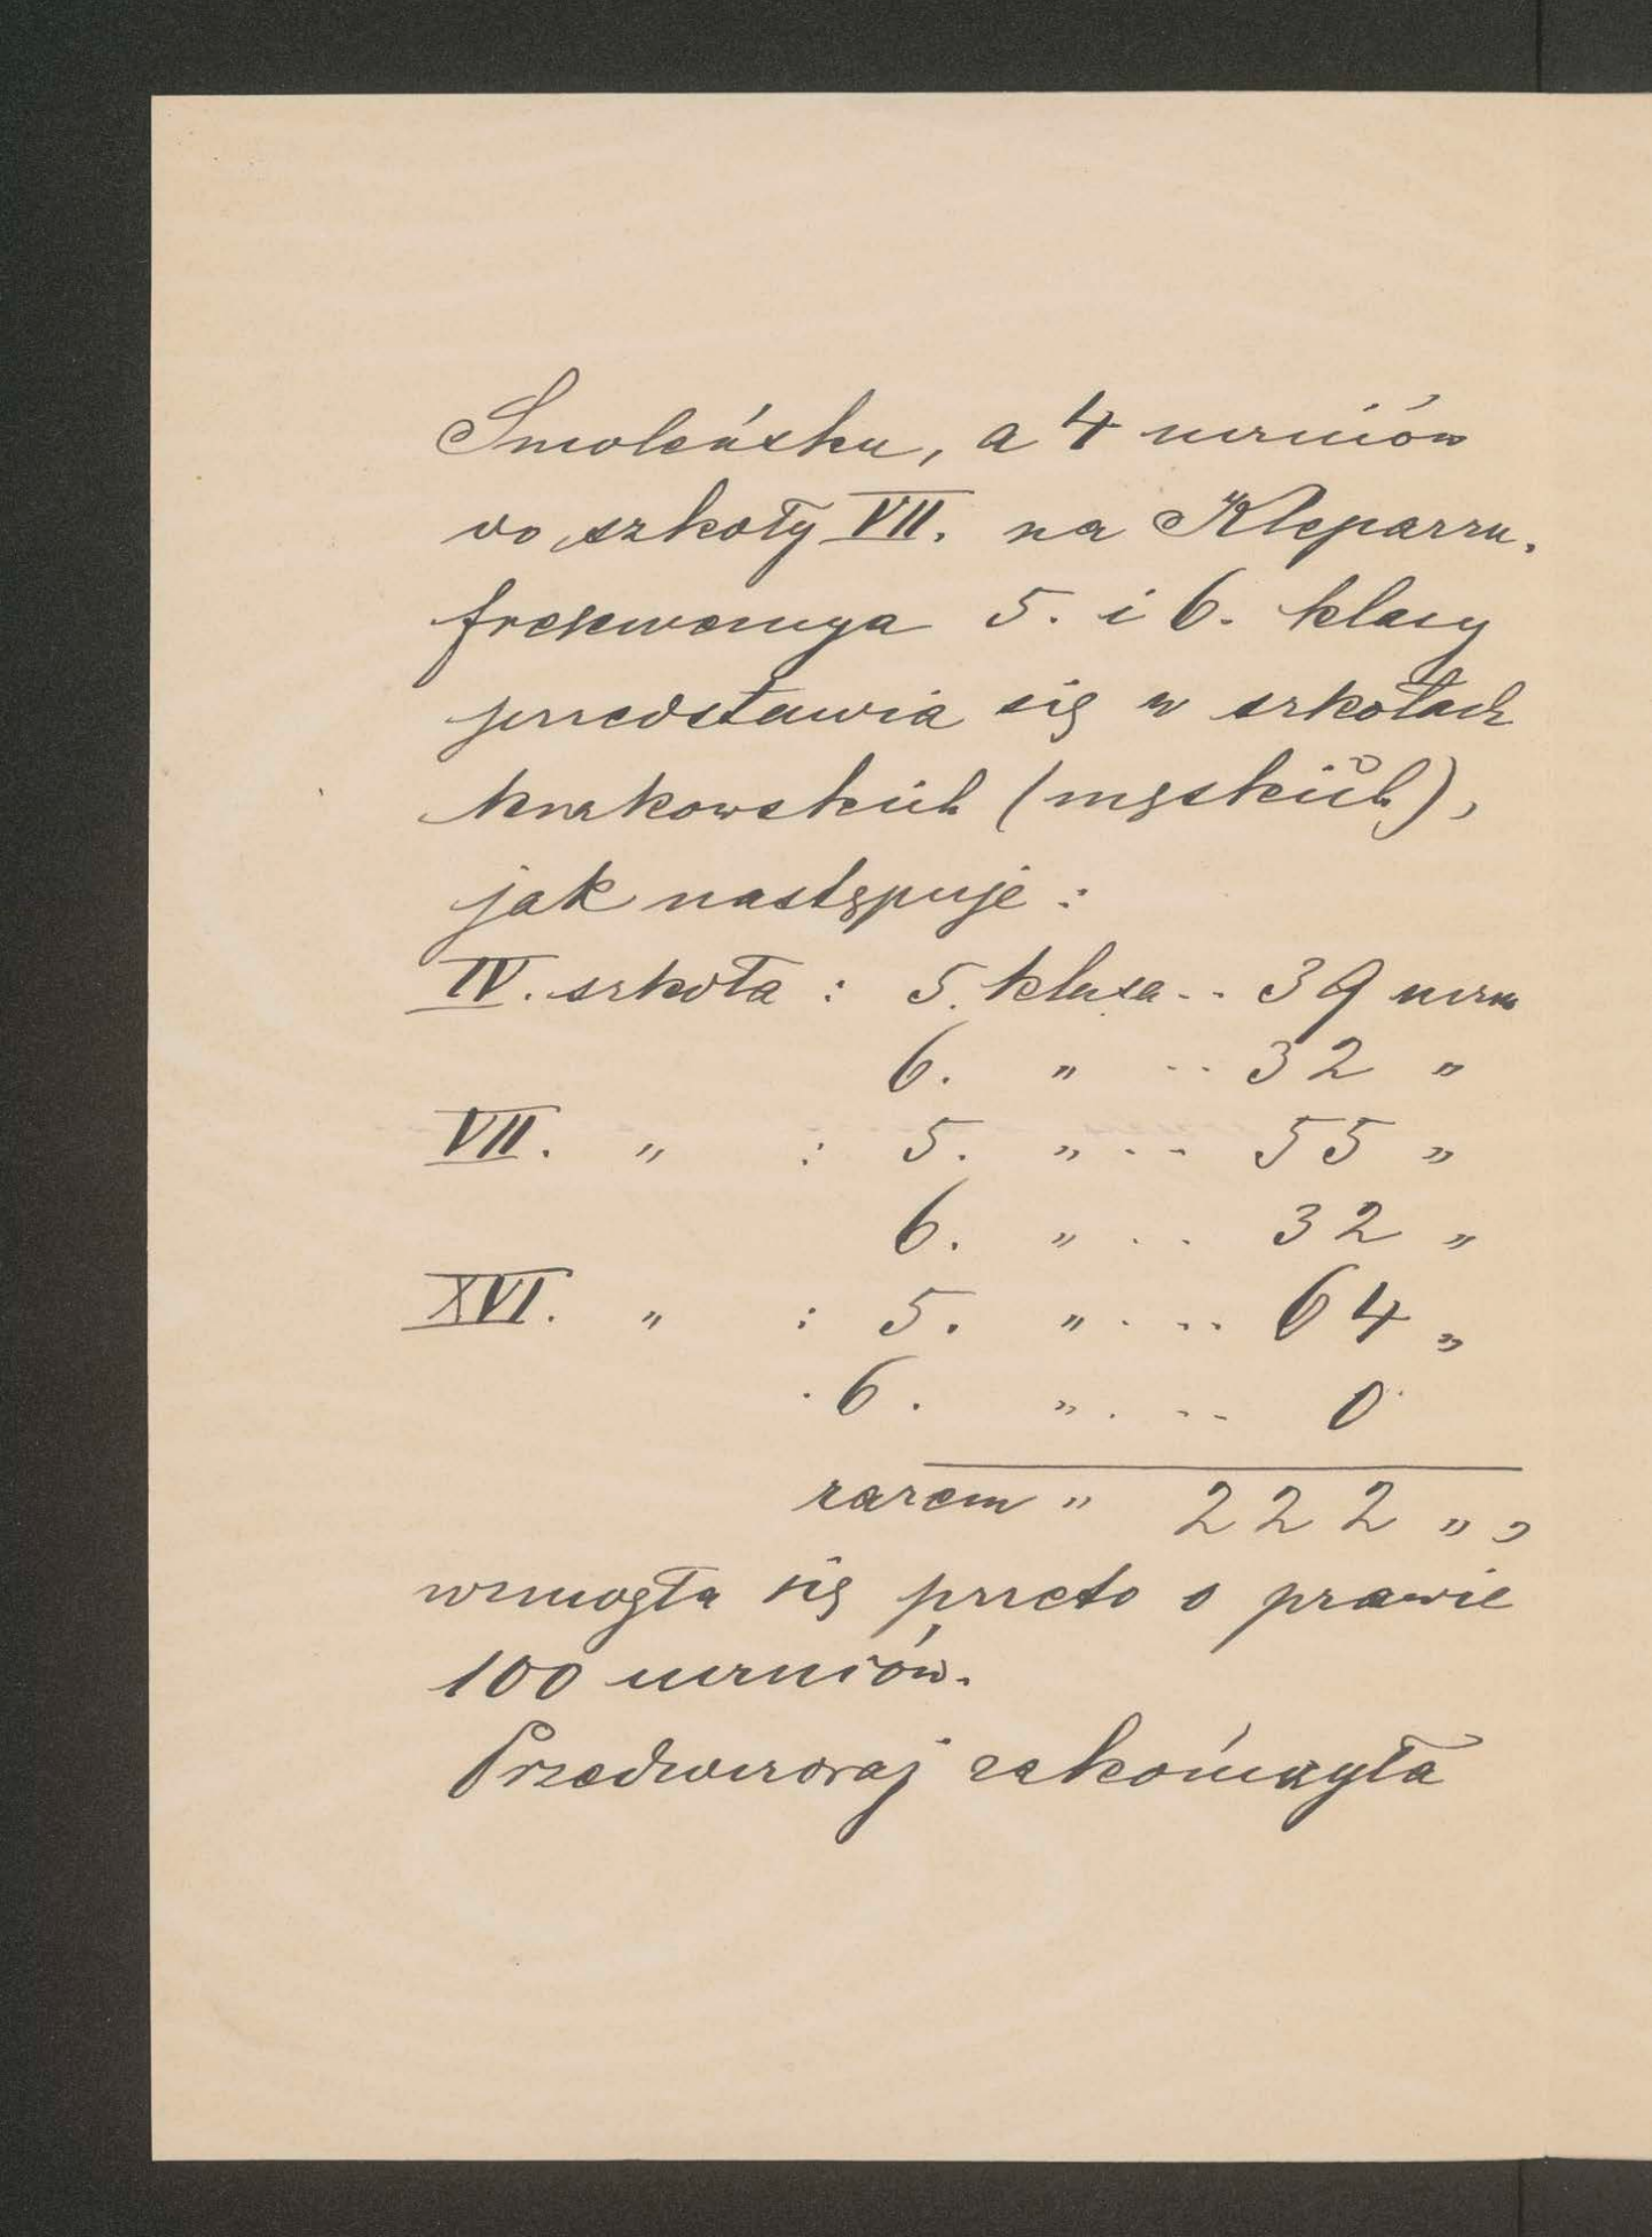 Smoleńsku, a 4 uczniów
do szkoły VII. na Kleparzu.
frekwencya 5. i 6. klasy
przedstawia się w szkołach
krakowskich (męskich),
jak następuje:
IV. szkoła : 5. klasa .. 39 uczn
6. „ .. 32 „
VII. „ : 5. „ ... 55 „
6. „ ... 32 „
XVI. „ : 5. „ ... 64 „
6. „ ... 0
razem „ 222 „ ,
wzmogła się przeto o prawie
100 uczniów.
Przedwczoraj zakończyła